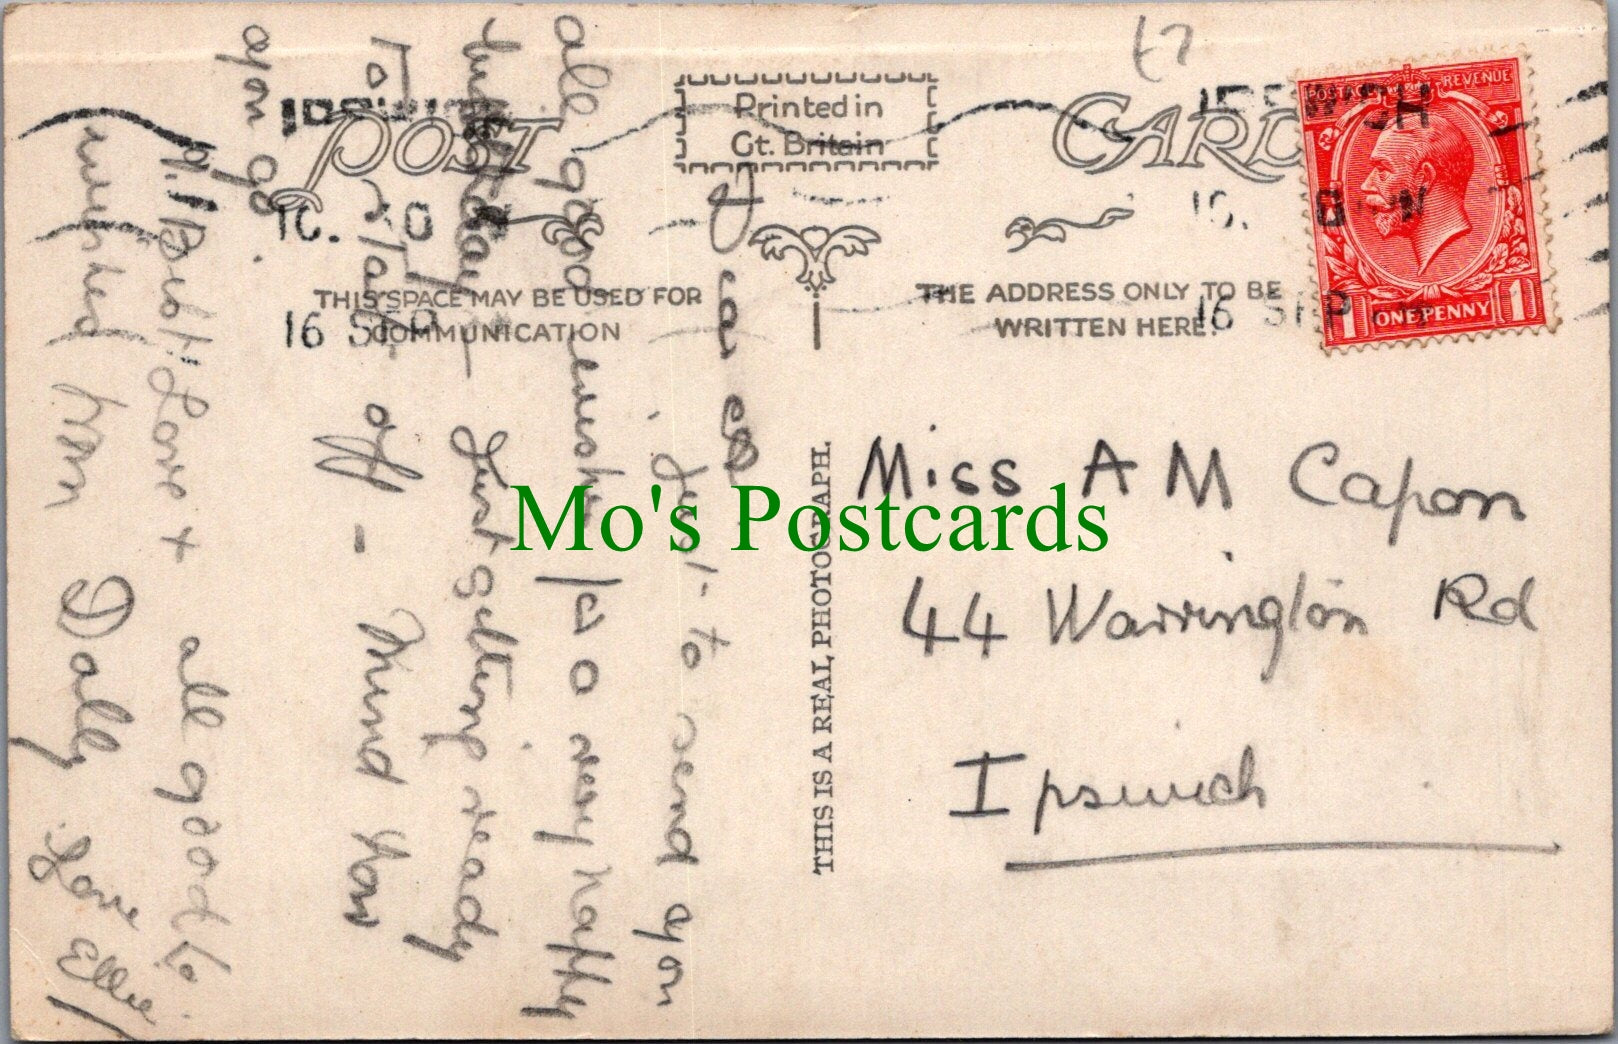 POST CARD
Printed in
Gt. Britain
THIS SPACE MAY BE USED FOR
COMMUNICATION
THE ADDRESS ONLY TO BE
WRITTEN HERE.
THIS IS A REAL PHOTOGRAPH.
IPSWICH
16 SEP
IPSWICH
16 SEP
POSTAGE REVENUE
1 ONE PENNY 1
Miss A M Capon
44 Warrington Rd
Ipswich
Dear
Just to send you
all good wishes for a very happy
birthday - Just getting ready
to start off - Mind how
you go.
Love + all good
wishes Dolly Love
Ellie
Mo's Postcards